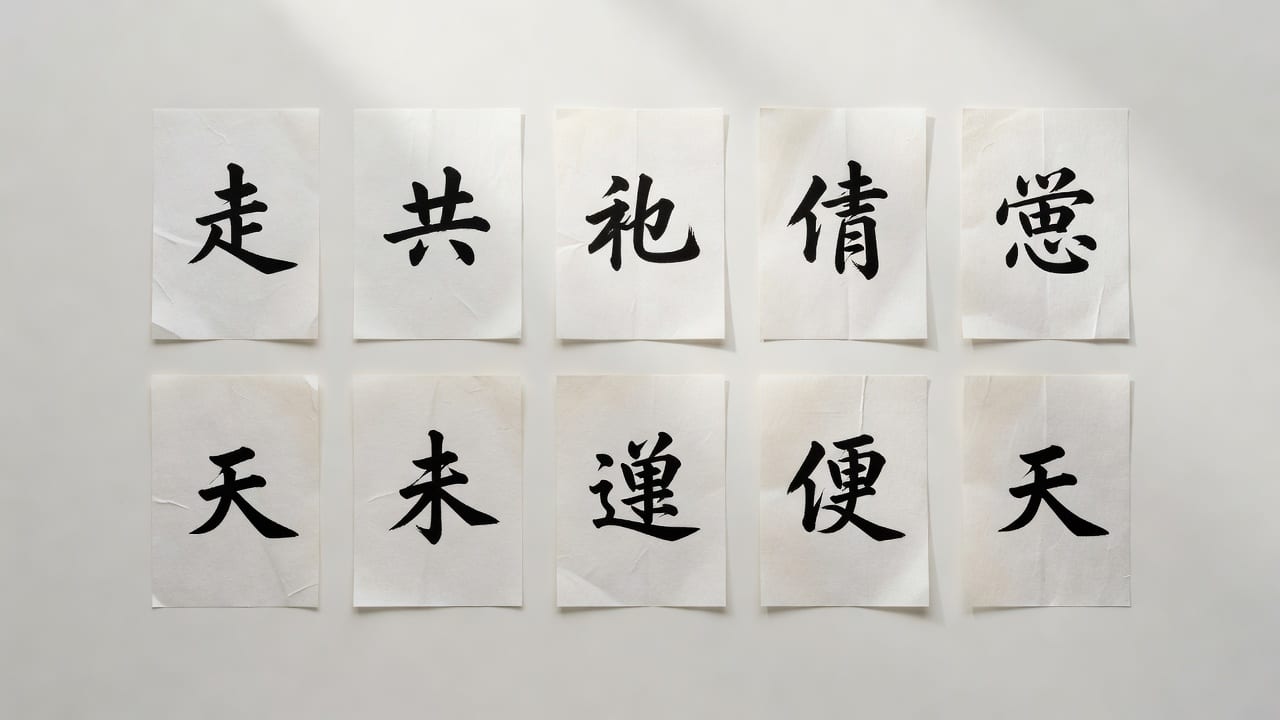 走共祂倩
天未便天